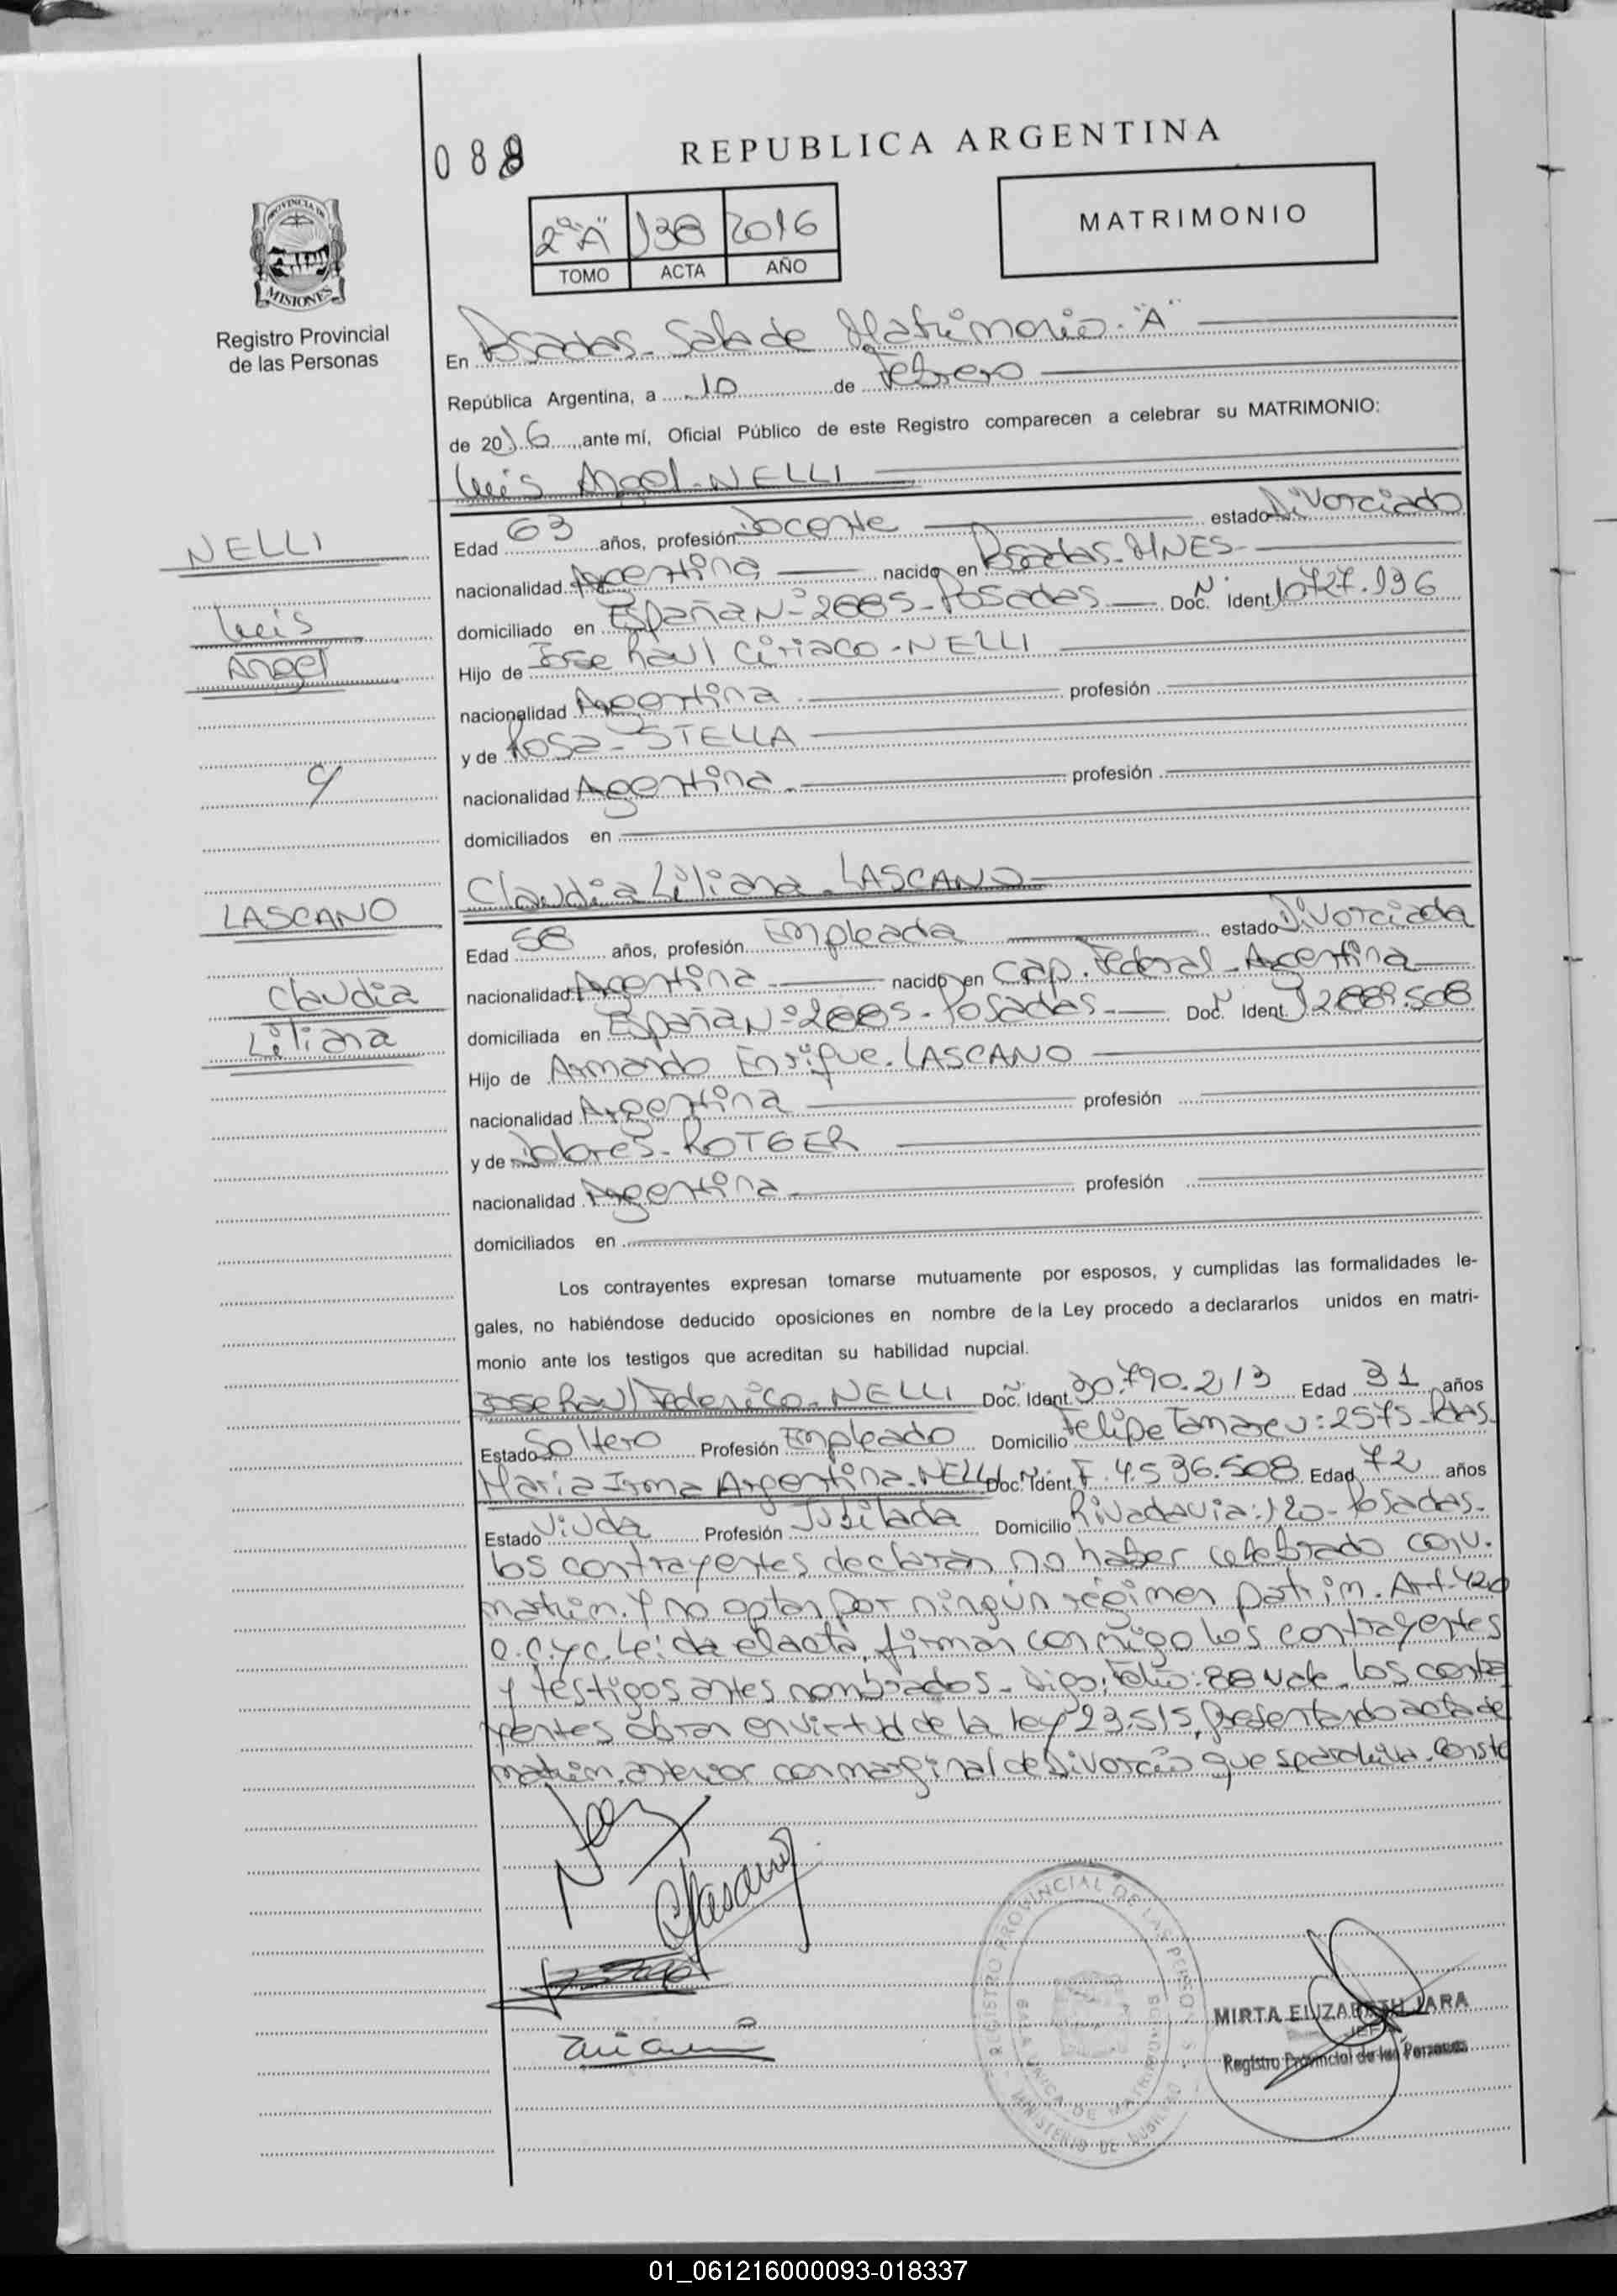 088
REPUBLICA ARGENTINA
2º"A" 138 2016
TOMO ACTA AÑO
MATRIMONIO
PROVINCIA DE
MISIONES
Registro Provincial
de las Personas
En Posadas - Sala de Matrimonio - "A"
República Argentina, a 10 de Febrero
de 2016 ante mí, Oficial Público de este Registro comparecen a celebrar su MATRIMONIO:
Luis Angel - NELLI
NELLI
Luis
Angel
c/
LASCANO
Claudia
Liliana
Edad 63 años, profesión Docente estado Divorciado
nacionalidad Argentina nacido en Posadas - MNES -
domiciliado en España Nº 2885 - Posadas Doc. Ident. 10.727.136
Hijo de Jose Raul Ciriaco - NELLI
nacionalidad Argentina profesión
y de Rosa - STELLA
nacionalidad Argentina profesión
domiciliados en
Claudia Liliana - LASCANO
Edad 58 años, profesión Empleada estado Divorciada
nacionalidad Argentina nacido en Cap. Federal - Argentina
domiciliada en España Nº 2885 - Posadas Doc. Ident. 12.889.508
Hijo de Armando Enrique - LASCANO
nacionalidad Argentina profesión
y de Dolores - ROTGER
nacionalidad Argentina profesión
domiciliados en
Los contrayentes expresan tomarse mutuamente por esposos, y cumplidas las formalidades le-
gales, no habiéndose deducido oposiciones en nombre de la Ley procedo a declararlos unidos en matri-
monio ante los testigos que acreditan su habilidad nupcial.
Jose Raul Federico - NELLI Doc. Ident. 30.790.213 Edad 31 años
Estado Soltero Profesión Empleado Domicilio Felipe Tamareu: 2575 - Pdas.
Maria Irma Argentina - NELLI Doc. Ident. F. 4.596.508 Edad 72 años
Estado Viuda Profesión Jubilada Domicilio Rivadavia: 120 - Posadas.
Los contrayentes declaran no haber celebrado conv.
matrim. y no optan por ningún régimen patrim. Art. 420
C.C.yC. Leida el acta, firman conmigo los contrayentes
y testigos antes nombrados - Digo: Folio: 88 Vale. Los contra
yentes obran en virtud de la ley 23.515, presentando acta de
matrim. anterior con marginal de Divorcio que se archiva. Conste
REGISTRO PROVINCIAL DE LAS PERSONAS
MINISTERIO DE
MIRTA ELIZABETH JARA
JEFA
Registro Provincial de las Personas
01_061216000093-018337